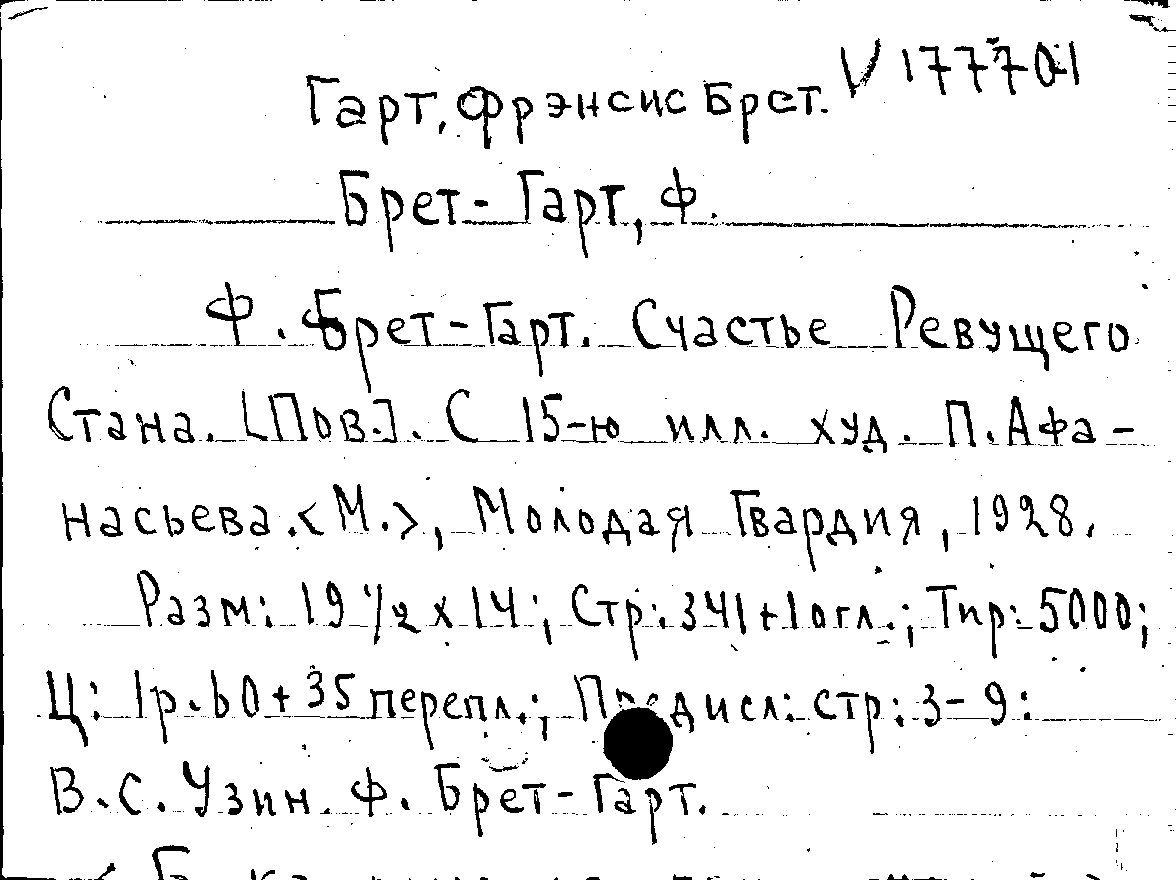 V 177701
Гарт, Фрэнсис Брет.
Брет-Гарт, Ф.
Ф. Брет-Гарт. Счастье Ревущего
Стана. [Пов.]. С 15-ю илл. худ. П. Афа-
насьева. <М.>, Молодая Гвардия, 1928.
Разм: 19 1/2 x 14; Стр: 341+1 огл.; Тир: 5000;
Ц: 1р. 60+35 перепл.; Предисл: стр: 3-9:
В.С. Узин. Ф. Брет-Гарт.